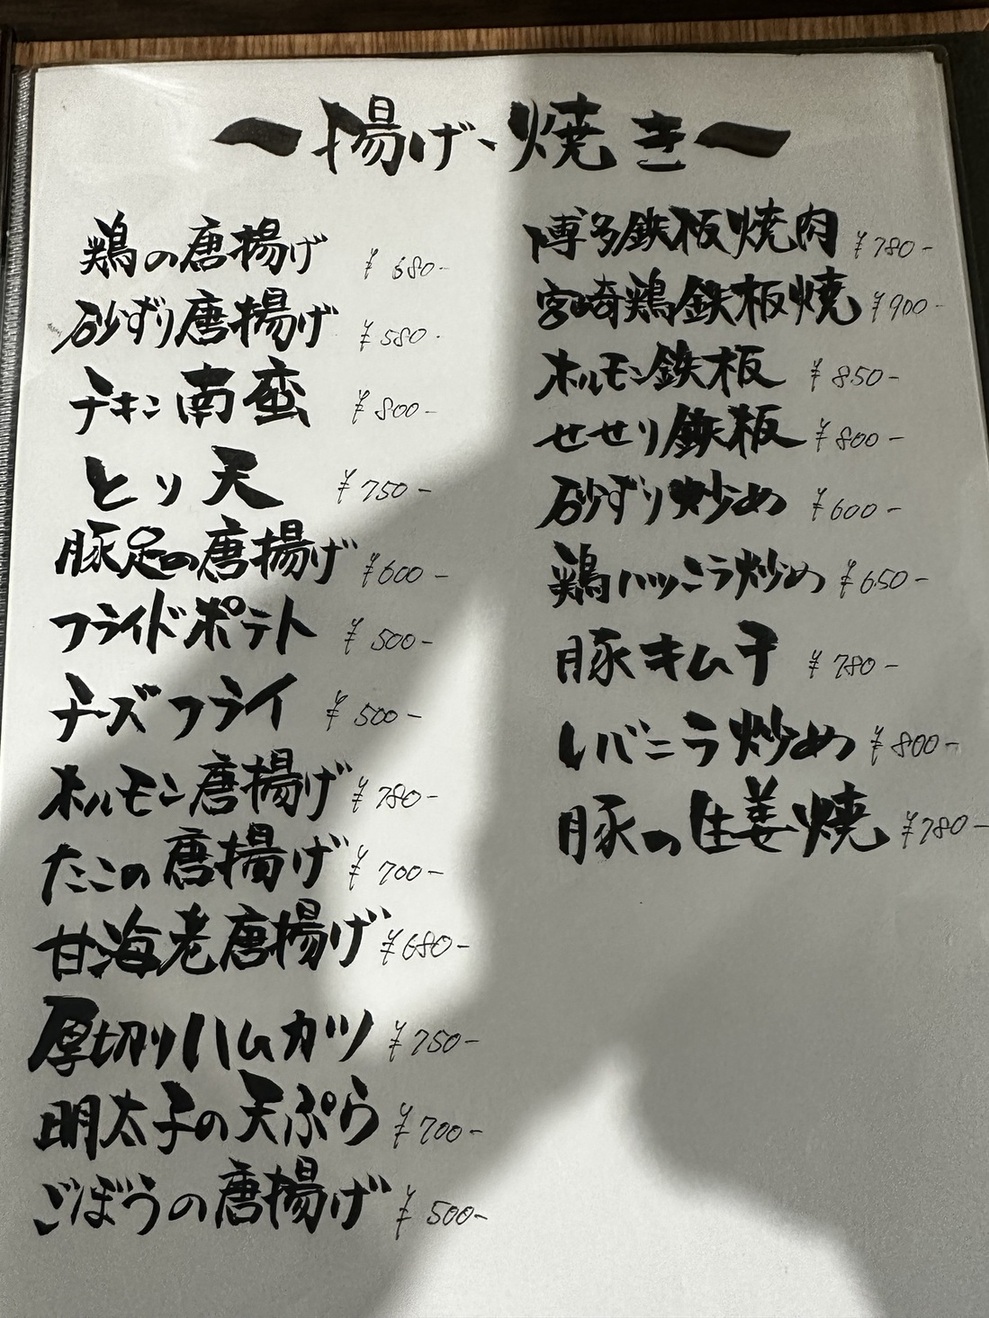 〜揚げ、焼き〜
鶏の唐揚げ ¥680-
砂ずり唐揚げ ¥580-
チキン南蛮 ¥800-
とり天 ¥750-
豚足の唐揚げ ¥600-
フライドポテト ¥500-
チーズフライ ¥500-
ホルモン唐揚げ ¥780-
たこの唐揚げ ¥700-
甘海老唐揚げ ¥680-
厚切りハムカツ ¥750-
明太子の天ぷら ¥700-
ごぼうの唐揚げ ¥500-
博多鉄板焼肉 ¥780-
宮崎鶏鉄板焼 ¥900-
ホルモン鉄板 ¥850-
せせり鉄板 ¥800-
砂ずり炒め ¥600-
鶏ハツニラ炒め ¥650-
豚キムチ ¥780-
レバニラ炒め ¥800-
豚の生姜焼 ¥780-